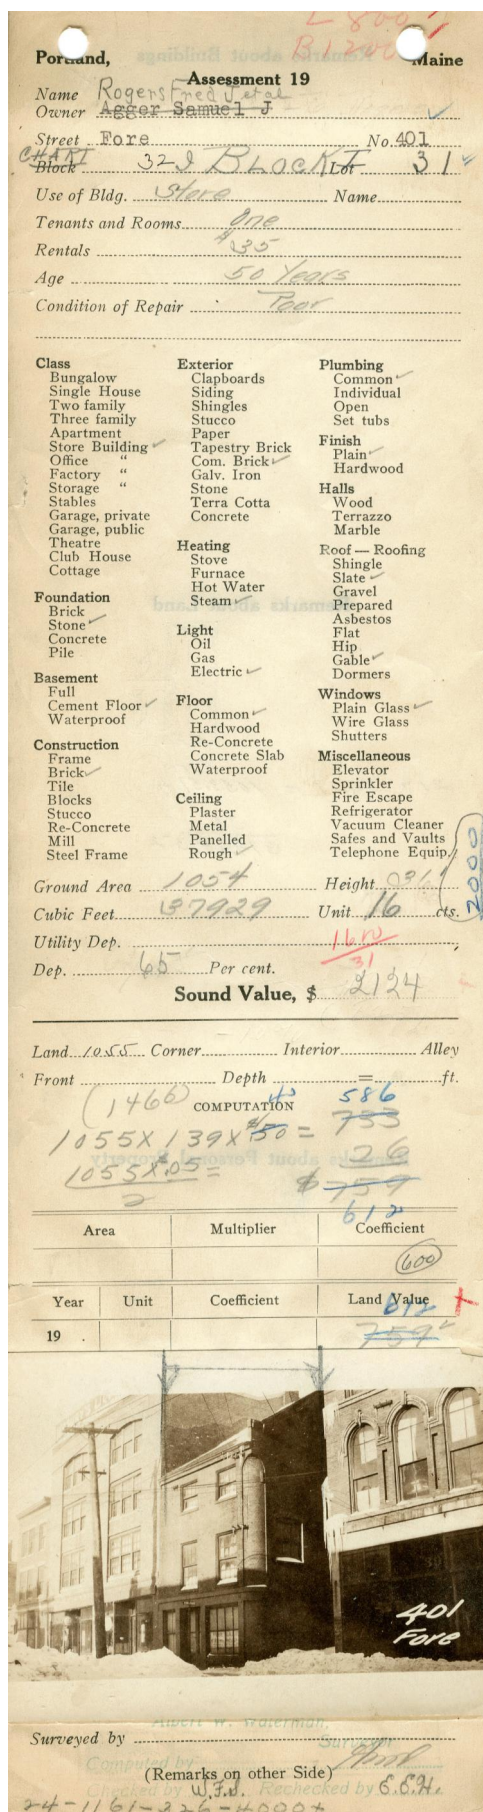 L 800
B 1200
Portland, Maine
Assessment 19
Name Rogers Fred J etal
Owner Agger Samuel J
Street Fore No. 401
CHART Block 32 I BLOCK I Lot 31
Use of Bldg. Store Name
Tenants and Rooms One
Rentals $35
Age 50 Years
Condition of Repair Poor
Class
Bungalow
Single House
Two family
Three family
Apartment
Store Building ✓
Office "
Factory "
Storage "
Stables
Garage, private
Garage, public
Theatre
Club House
Cottage
Foundation
Brick
Stone ✓
Concrete
Pile
Basement
Full
Cement Floor ✓
Waterproof
Construction
Frame
Brick ✓
Tile
Blocks
Stucco
Re-Concrete
Mill
Steel Frame
Exterior
Clapboards
Siding
Shingles
Stucco
Paper
Tapestry Brick
Com. Brick ✓
Galv. Iron
Stone
Terra Cotta
Concrete
Heating
Stove
Furnace
Hot Water
Steam ✓
Light
Oil
Gas
Electric ✓
Floor
Common ✓
Hardwood
Re-Concrete
Concrete Slab
Waterproof
Ceiling
Plaster
Metal
Panelled
Rough ✓
Plumbing
Common ✓
Individual
Open
Set tubs
Finish
Plain ✓
Hardwood
Halls
Wood
Terrazzo
Marble
Roof — Roofing
Shingle
Slate ✓
Gravel
Prepared
Asbestos
Flat
Hip
Gable ✓
Dormers
Windows
Plain Glass ✓
Wire Glass
Shutters
Miscellaneous
Elevator
Sprinkler
Fire Escape
Refrigerator
Vacuum Cleaner
Safes and Vaults
Telephone Equip.
2000
Ground Area 1054 Height
Cubic Feet 37929 Unit 16 cts.
Utility Dep.
31
Dep. 65 Per cent.
Sound Value, $ 2124
Land 1055 Corner Interior Alley
Front Depth = ft.
(1466) COMPUTATION 586
1055 X 139 X 50 = 733
1055 X .05 = 26
2 $ 759
612
Area Multiplier Coefficient
600
Year Unit Coefficient Land Value
612
19 759
401
Fore
Albert W. Waterman,
Surveyed by Surveyor
Computed by
(Remarks on other Side)
Checked by W.F.S. Rechecked by E.E.H.
24-1161-326-4000+